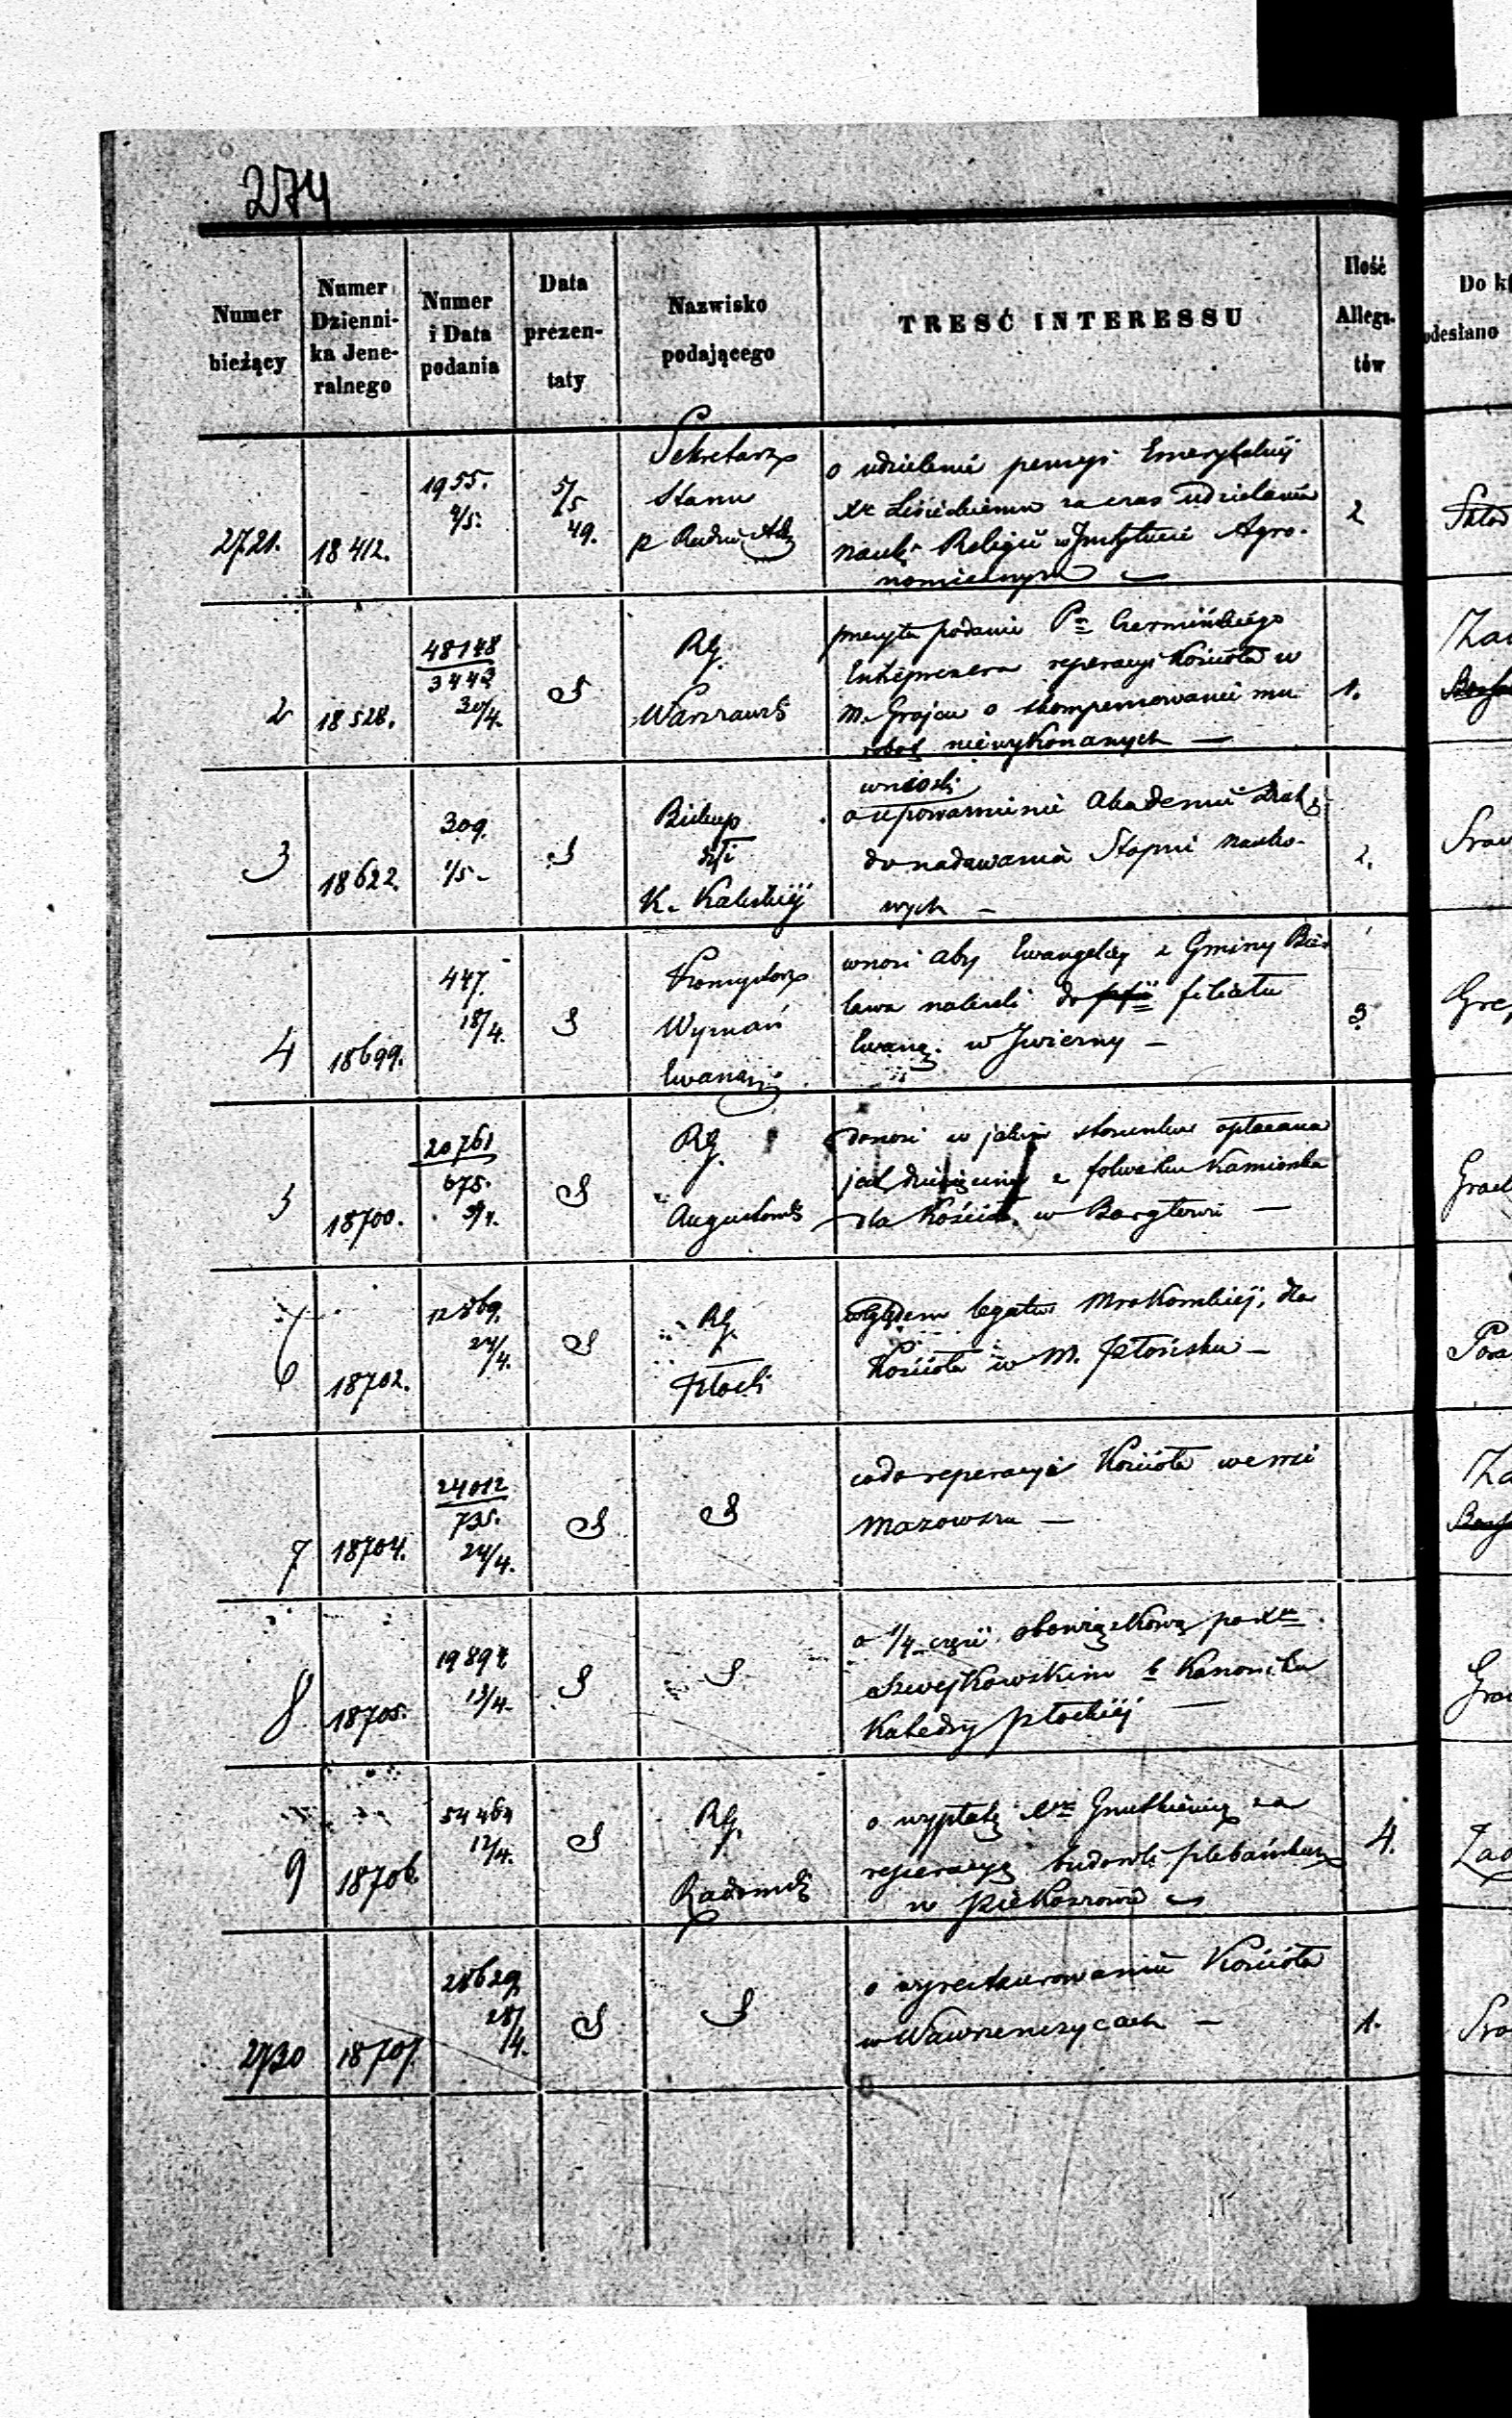 274
Numer bieżący
Numer Dzienni-ka Jene-ralnego
Numer i Data podania
Data prezen-taty
Nazwisko podającego
TRESĆ INTERESSU
Ilość Allega-tów
Do k
odesłano
2721.
18412.
1955.
4/5.
5/5
49.
Sekretarz
Stanu
o udzielenie pensyi Emerytalnéj
za czas udzielania
nauki Religii w Instytucie Agro-
nomicznym —
2
2
18528.
48148
3442
30/4.
S
RG.
Warszaws
podanie Pa Czermińskiego
Entreprenera reperacyi Kościoła w
M. Grojcu o skompensowanie mu
robót niewykonanych —
1.
3
18622.
309.
1/5-
S
Biskup
K. Kaliskiéj
wnioski
o upoważnienie Akademii
do nadawania Stopni nauko-
wych —
2.
4
18699.
447.
18/4.
S
Konsystorz
Wyznań
Ewang.
wnosi aby Ewangelicy z Gminy
należeli do filiału
Ewang. w —
3.
5
18700.
20761
675.
S
RG.
Augustows
donosi w jakim stosunku opłacana
jest dziesięcina z folwarku Kamionka
dla Kościoła w Bargłowie —
6
18702.
12869.
24/4.
S
RG.
Płocki
względem legatu dla
Kościoła w M. Płońsku —
7
18704.
24012
735.
24/4.
S
S
co do reperacyi Kościoła we wsi
Mazowsze —
8
18705.
19892
13/4.
S
S
o 1/4 część obowiązkową po Xe
Szwejkowskim b. Kanoniku
Katedry Płockiéj —
9
18706.
54464
12/4.
S
RG.
Radoms
o wypłatę Xu Gnutkiewicz za
reperacyę budowli plebańskich
w Piekoszowie
4.
2730
18707.
28629
28/4.
S
S
o wyrestaurowanie Kościoła
w Wawrzenczycach —
1.